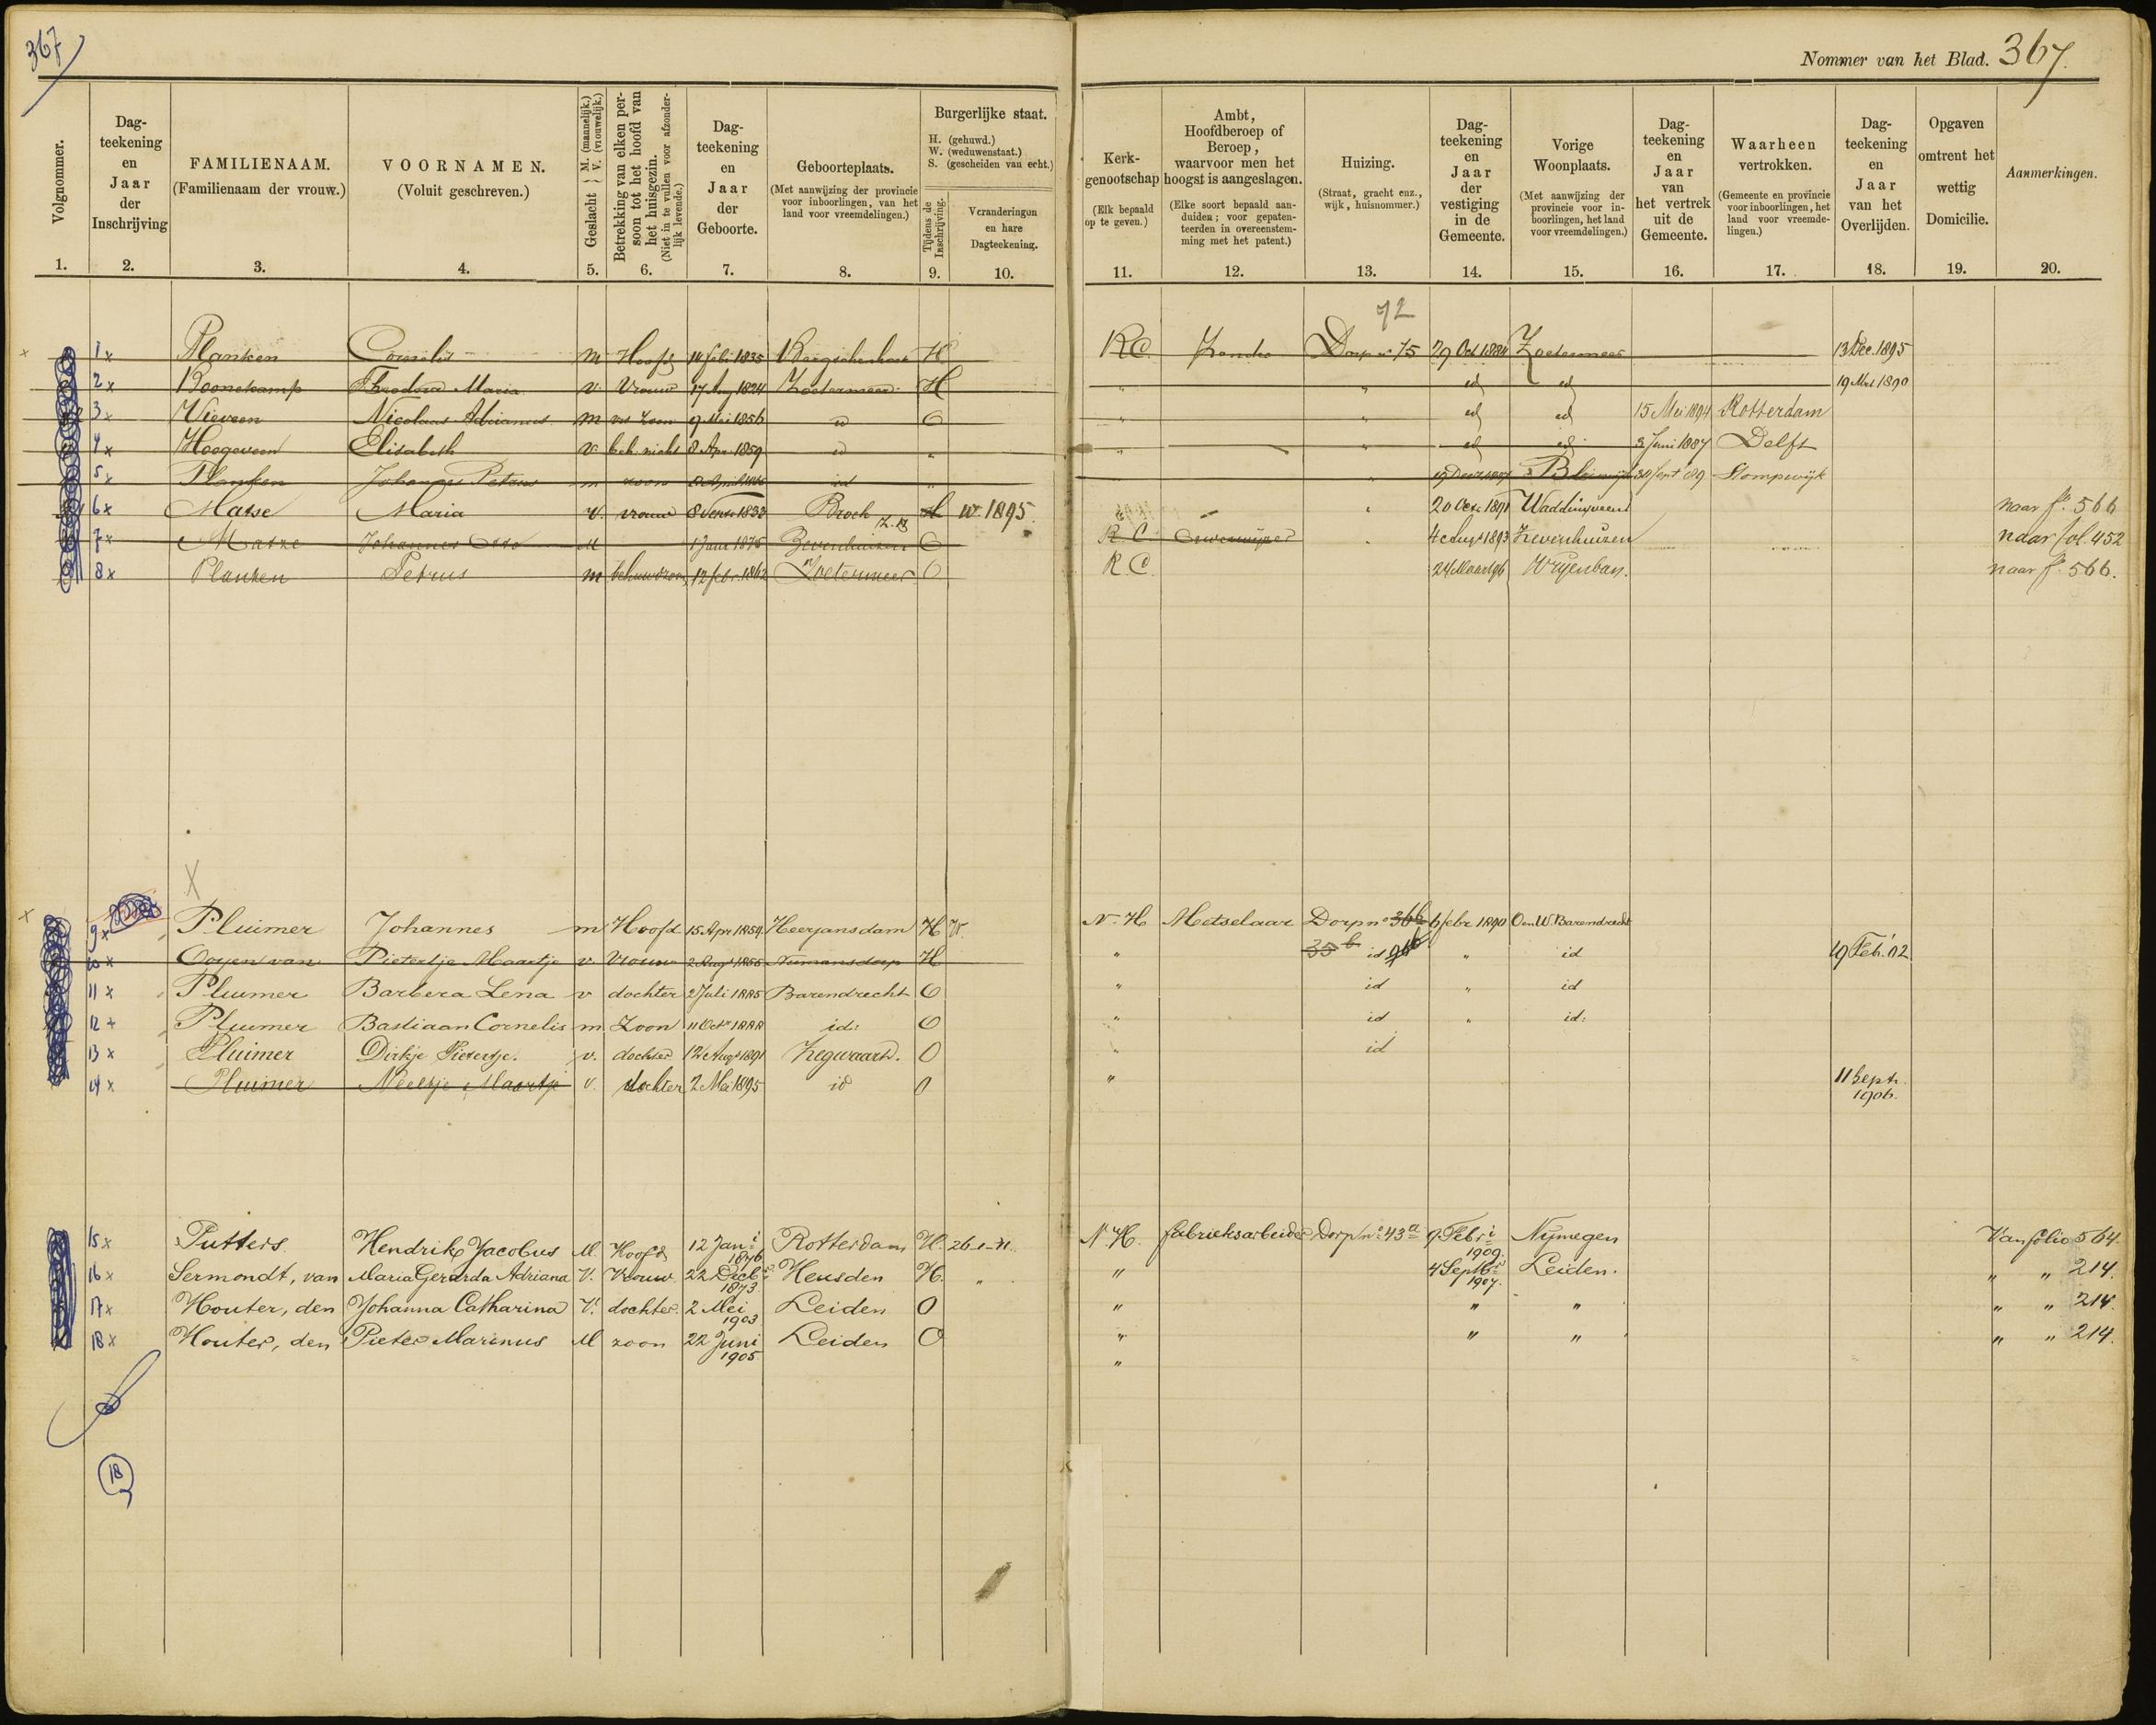 367
Nommer van het Blad. 367.
Volgnommer. 1.
Dag-teekening en Jaar der Inschrijving 2.
FAMILIENAAM. (Familienaam der vrouw.) 3.
VOORNAMEN. (Voluit geschreven.) 4.
Geslacht { M. (mannelijk.) V. (vrouwelijk.) 5.
Betrekking van elken persoon tot het hoofd van het huisgezin. (Niet in te vullen voor afzonderlijk levende.) 6.
Dag-teekening en Jaar der Geboorte. 7.
Geboorteplaats. (Met aanwijzing der provincie voor inboorlingen, van het land voor vreemdelingen.) 8.
Burgerlijke staat.
H. (gehuwd.)
W. (weduwenstaat.)
S. (gescheiden van echt.)
Tijdens de Inschrijving. 9.
Veranderingen en hare Dagteekening. 10.
Kerk-genootschap (Elk bepaald op te geven.) 11.
Ambt, Hoofdberoep of Beroep, waarvoor men het hoogst is aangeslagen. (Elke soort bepaald aanduiden; voor gepatenteerden in overeenstemming met het patent.) 12.
Huizing. (Straat, gracht enz., wijk, huisnommer.) 13.
Dag-teekening en Jaar der vestiging in de Gemeente. 14.
Vorige Woonplaats. (Met aanwijzing der provincie voor inboorlingen, het land voor vreemdelingen.) 15.
Dag-teekening en Jaar van het vertrek uit de Gemeente. 16.
Waarheen vertrokken. (Gemeente en provincie voor inboorlingen, het land voor vreemdelingen.) 17.
Dag-teekening en Jaar van het Overlijden. 18.
Opgaven omtrent het wettig Domicilie. 19.
Aanmerkingen. 20.
72
1 x Planken Cornelis m Hoofd 14 Febr 1835 Bergschenhoek H RC Dorp nº 75 29 Oct 1884 Zoetermeer 13 Dec. 1895
2 x Boonekamp Theodora Maria v. Vrouw 17 Aug 1824 Zoetermeer H " " id id 19 Mrt 1890
3 x Vieveen Nicolaas Adrianus m zoon 9 Mei 1856 id O " " id id 15 Mei 1894 Rotterdam
4 x Hoogeveen Elisabeth v. beh. nicht 8 Apr 1859 id " " " id id 3 Juni 1887 Delft
5 x Planken Johannes Petrus m zoon id " " Bleiswijk 30 Sept 89 Stompwijk
6 x Matse Maria v. vrouw 1833 Broek H w. 1895 " 20 Oct. 1891 Waddinxveen naar fº. 566
7 x Matze Johannes Otto M 1 Juni 1875 Zevenhuizen Z.H O R.C. 4 Aug 1893 Zevenhuizen naar fol. 452
8 x Planken Petrus m behuwdzoon 17 febr. 1862 Zoetermeer O R.C. 24 Maart 96 Wijenban. naar fº. 566.
X
9 x Pluimer Johannes m Hoofd 15 Apr 1859 Heerjansdam H W. N.H Metselaar Dorp nº 36b 6 febr 1890 O en W. Barendrecht
10 x Ooyen van Pietertje Maartje v. Vrouw 2 Aug 1855 Numansdorp H " 35 b id 91b " id 19 Feb. '02
11 x Pluimer Barbera Lena v dochter 2 Juli 1885 Barendrecht O " id " id
12 + Pluimer Bastiaan Cornelis m Zoon 11 Octr 1888 id: O " id " id:
13 x Pluimer Dirkje Pietertje. v. dochter 12 Augs 1891 Zegwaard. O " id
14 x Pluimer Neeltje Maartje v. dochter 2 Mei 1895 id O " 11 Septr. 1906.
15 x Putters. Hendrik Jacobus M. Hoofd 12 Jani 1876 Rotterdam H. 26-1-11. N.H. fabrieksarbeider Dorp nº 43a 9 Febri 1909. Nijmegen Van folio 564.
16 x Sermondt, van Maria Gerarda Adriana V. Vrouw 22 Decbr 1873 Heusden H. " " 4 Septbr 1907. Leiden. " " 214.
17 x Houter, den Johanna Catharina V. dochter 2 Mei 1903 Leiden O " " " " " 214.
18 x Houter, den Pieter Marinus M zoon 22 Juni 1905 Leiden O " " " " " 214.
"
18